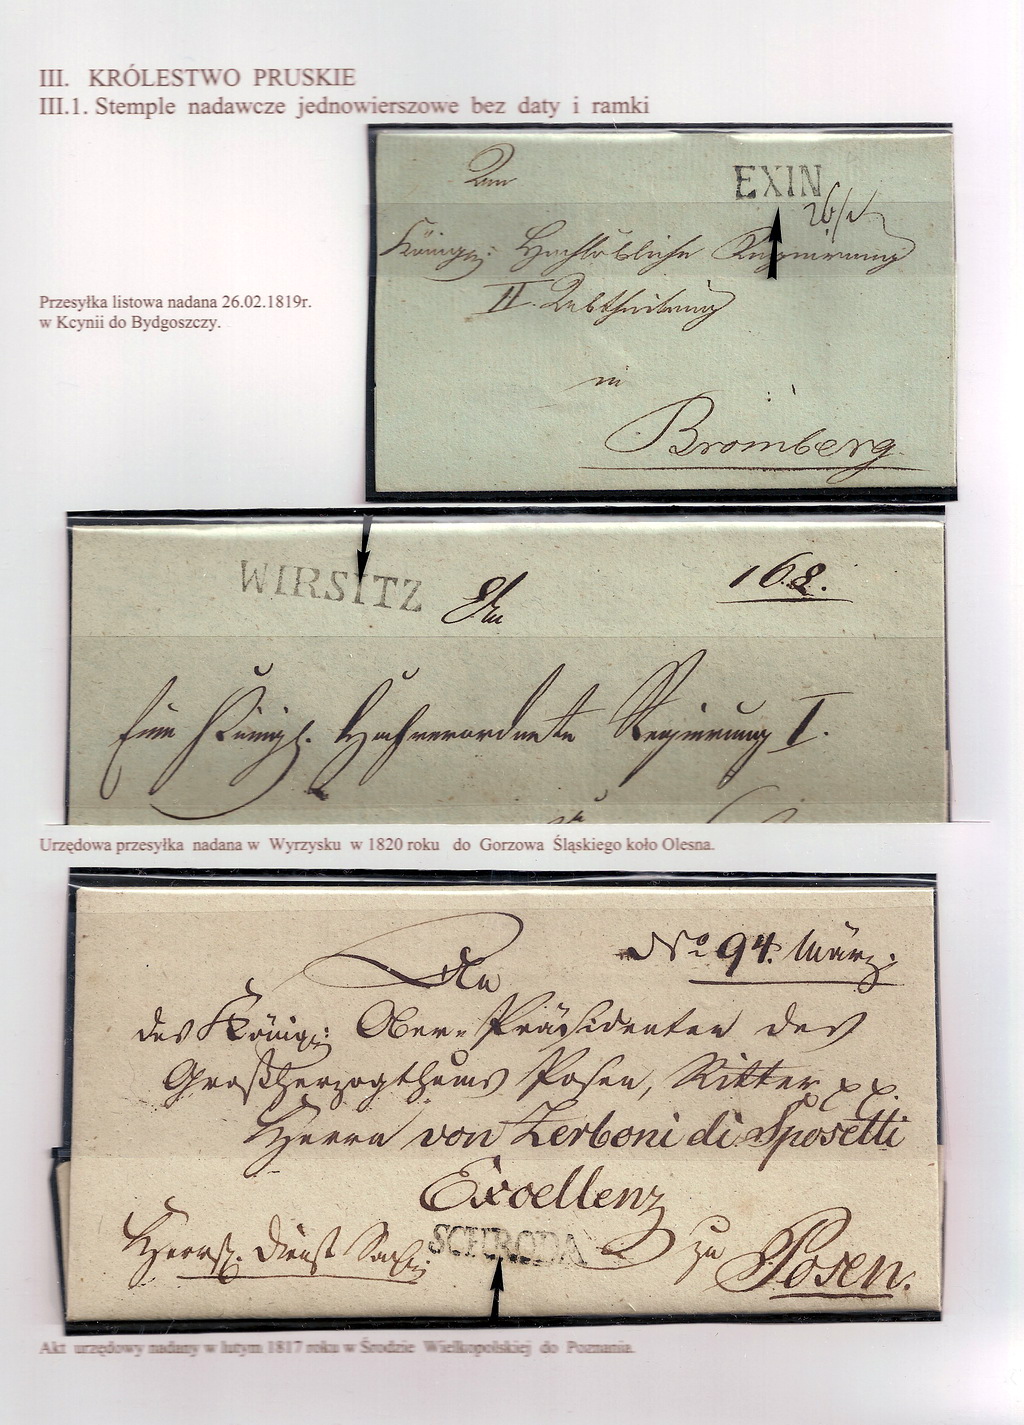 III. KRÓLESTWO PRUSKIE
III.1. Stemple nadawcze jednowierszowe bez daty i ramki
An
EXIN
26/2
Königl: Hochlöbliche Regierung
II. Abtheilung
in
Bromberg
Przesyłka listowa nadana 26.02.1819r.
w Kcynii do Bydgoszczy.
WIRSITZ
An
168.
Eine Königl. Hochverordnete Regierung I.
Urzędowa przesyłka nadana w Wyrzysku w 1820 roku do Gorzowa Śląskiego koło Olesna.
No 94. März.
An
des Königl: Ober-Präsidenten des
Großherzogthums Posen, Ritter pp.
Herrn von Zerboni di Sposetti
Excellenz
Herrsch. Dienst Sache
SCHRODA
zu
Posen.
Akt urzędowy nadany w lutym 1817 roku w Środzie Wielkopolskiej do Poznania.